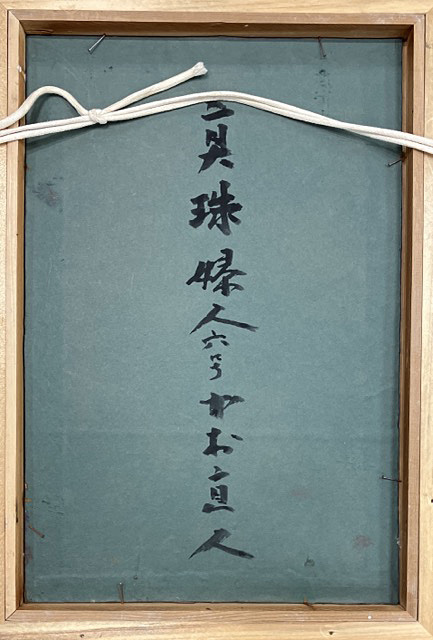 真珠婦人六号かお直人